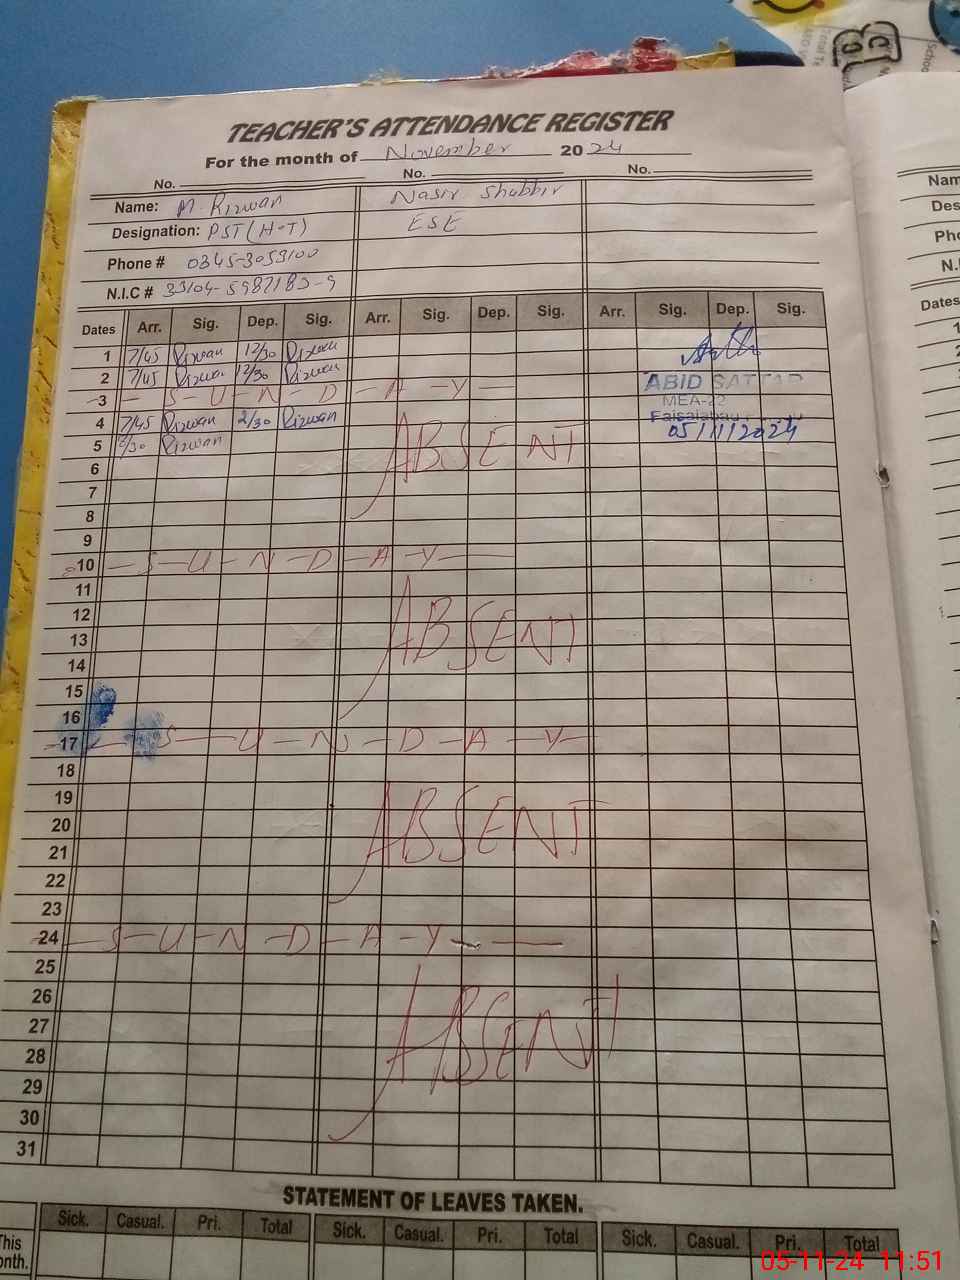 TEACHER'S ATTENDANCE REGISTER
For the month of November 2024
No. No. No.
Name: M. Rizwan Nasir Shabbir
Designation: PST (H.T) ESE
Phone # 0345-3059100
N.I.C # 33104-5987183-9
Dates Arr. Sig. Dep. Sig. Arr. Sig. Dep. Sig. Arr. Sig. Dep. Sig.
1 7/45 Rizwan 12/30 Rizwan
2 7/45 Rizwan 12/30 Rizwan
ABID SATTAR
3 - S - U - N - D - A - Y -
MEA-22
4 7/45 Rizwan 2/30 Rizwan
Faisalabad
5 /30 Rizwan
05/11/2024
ABSENT
6
7
8
9
10 - S - U - N - D - A - Y -
11
12
ABSENT
13
14
15
16
17 - S - U - N - D - A - Y -
18
19
20
ABSENT
21
22
23
24 - S - U - N - D - A - Y -
25
26
27
ABSENT
28
29
30
31
STATEMENT OF LEAVES TAKEN.
Sick. Casual. Pri. Total Sick. Casual. Pri. Total Sick. Casual. Pri. Total
This
onth.
Nam
Des
Pho
N.I
Dates
05-11-24 11:51